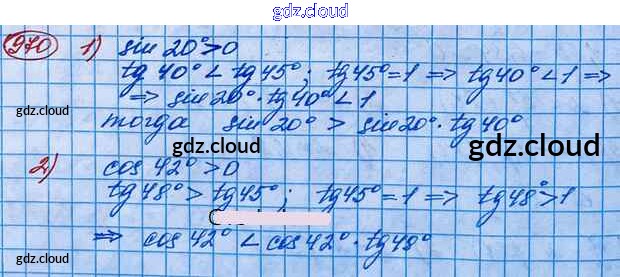 gdz.cloud
970 1) sin 20° > 0
gdz.cloud
tg 40° < tg 45° ; tg 45° = 1 => tg 40° < 1 =>
=> sin 20° · tg 40° < 1
gdz.cloud
тогда sin 20° > sin 20° · tg 40°
gdz.cloud
gdz.cloud
2) cos 42° > 0
tg 48° > tg 45° ; tg 45° = 1 => tg 48° > 1
=> cos 42° < cos 42° · tg 48°
gdz.cloud
gdz.cloud